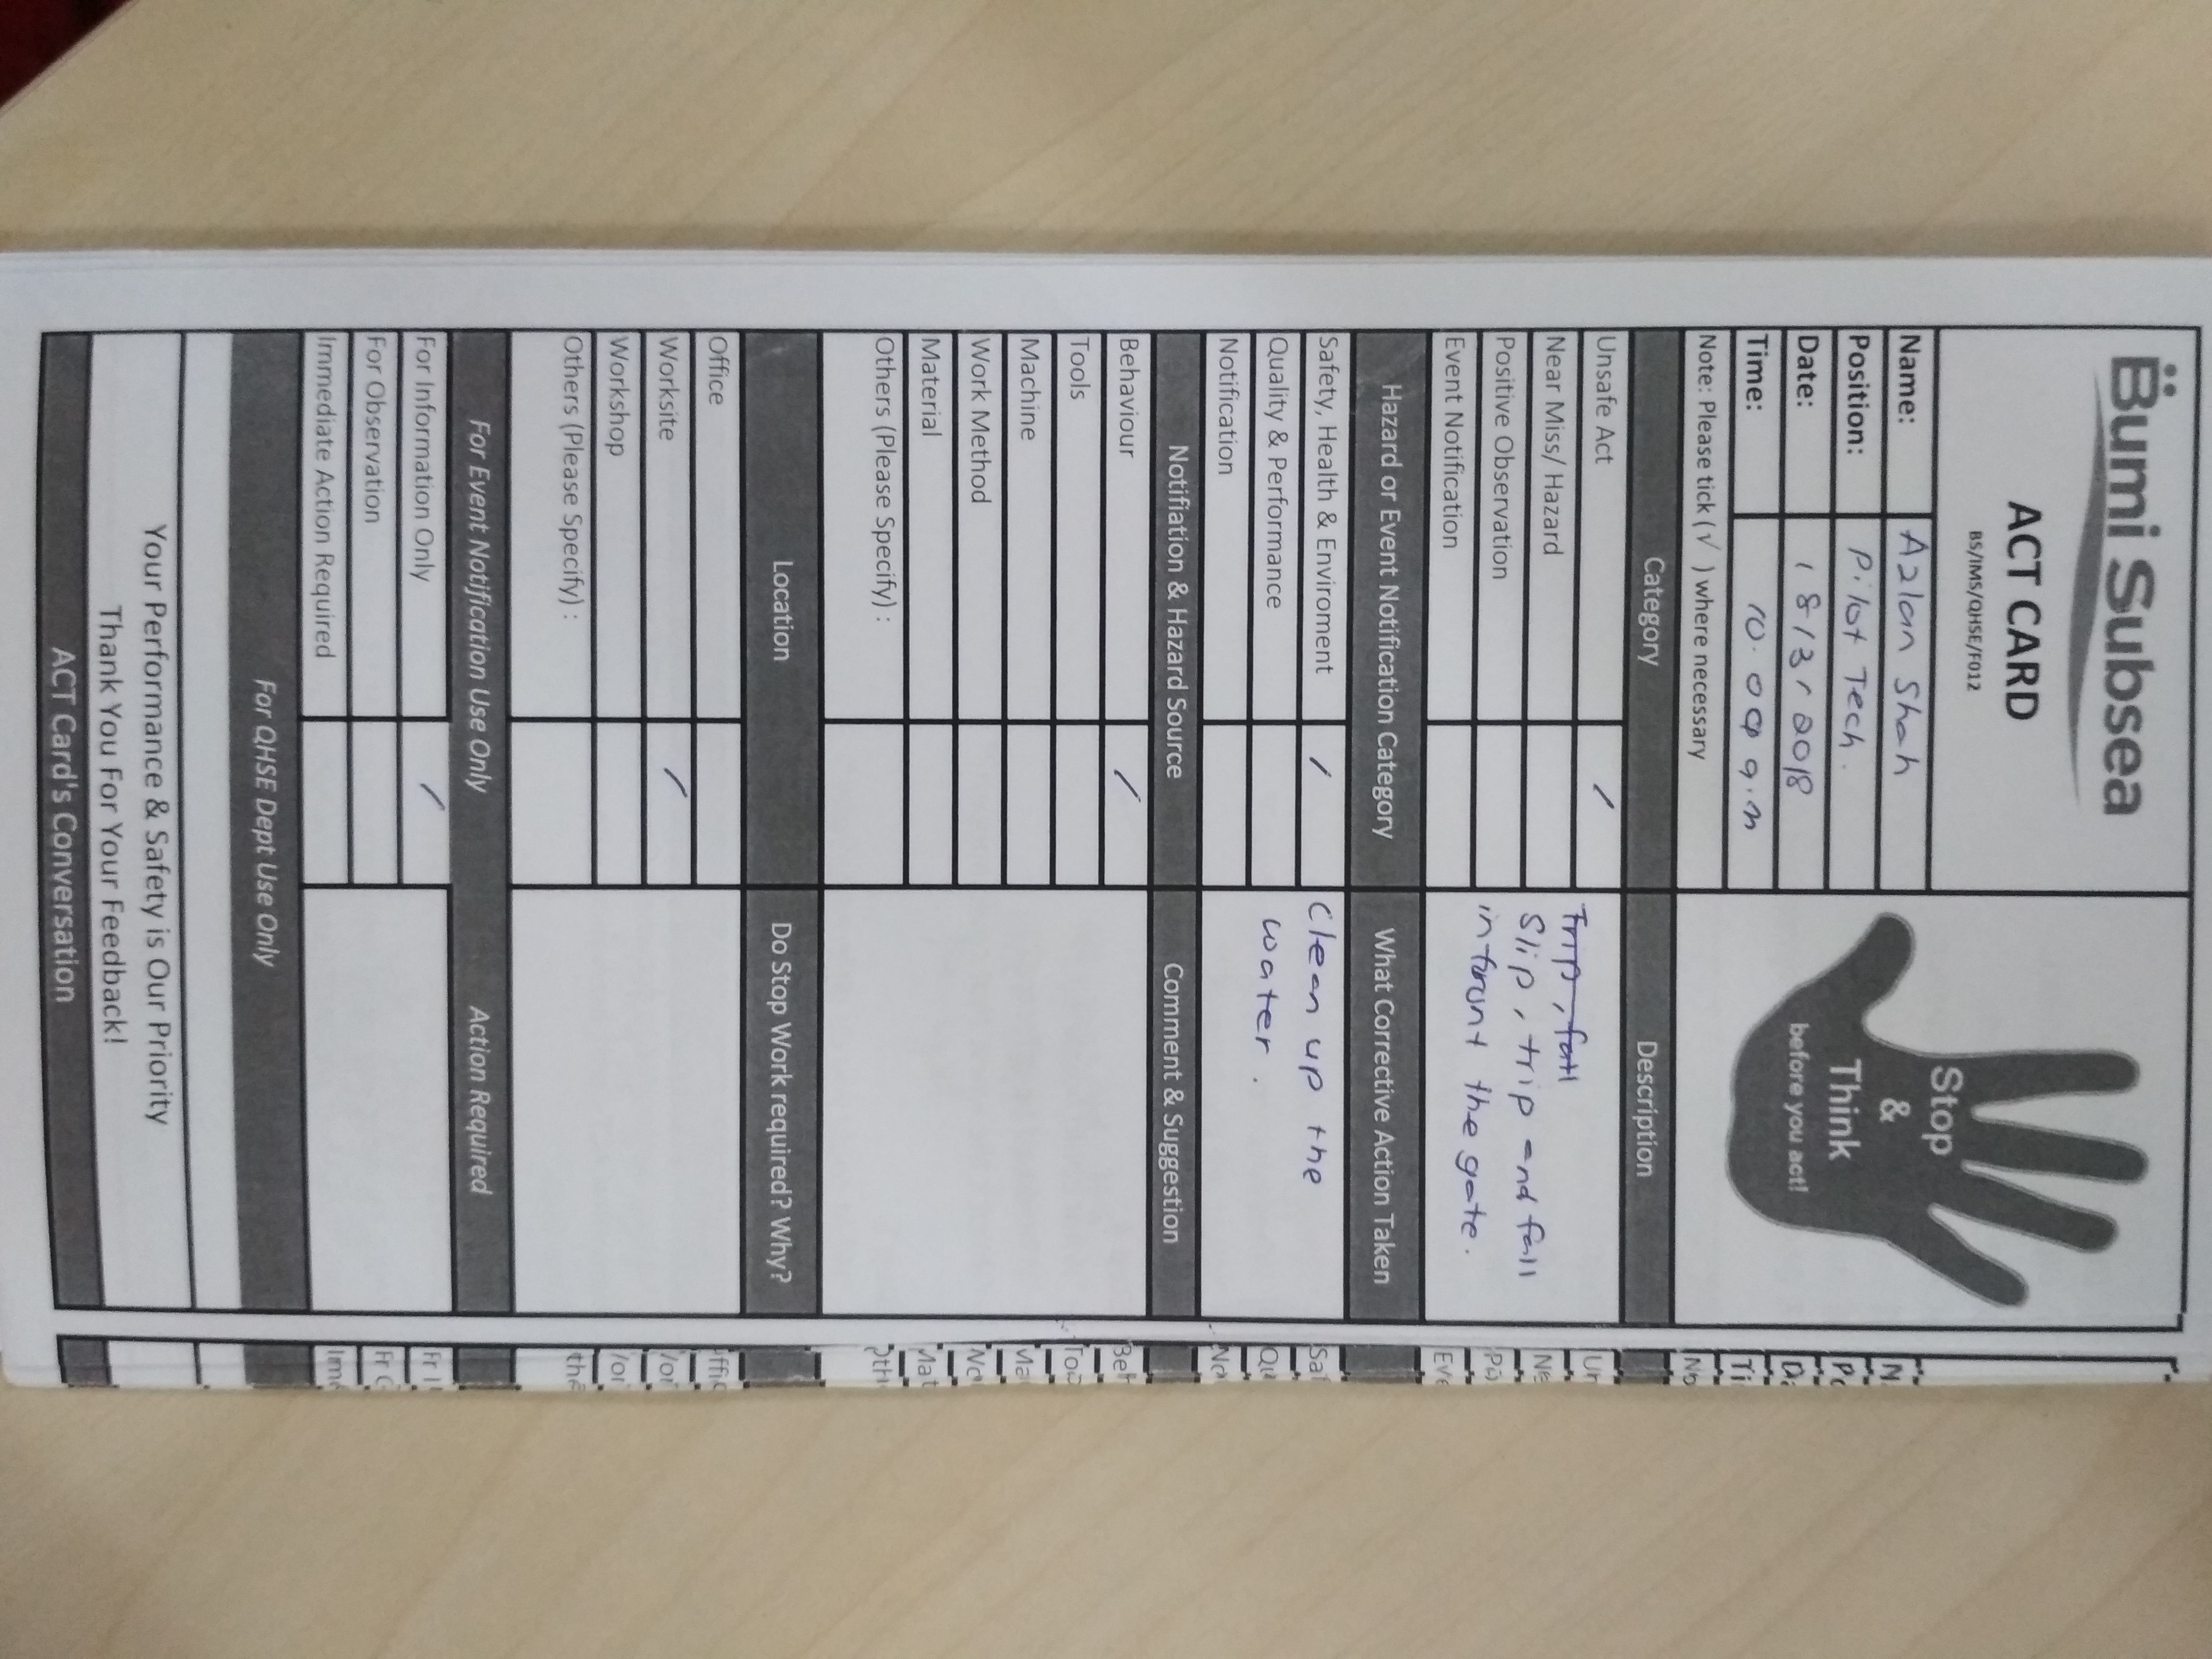 Bumi Subsea
ACT CARD
BS/IMS/QHSE/F012
Stop
&
Think
before you act!
Name: Azlan Shah
Position: Pilot Tech.
Date: 18/3/2018
Time: 10.00 a.m
Note: Please tick (√ ) where necessary
Category Description
Unsafe Act / Trip, fall
Near Miss/ Hazard Slip, trip and fall
Positive Observation infront the gate.
Event Notification
Hazard or Event Notification Category What Corrective Action Taken
Safety, Health & Enviroment / Clean up the
Quality & Performance water.
Notification
Notifiation & Hazard Source Comment & Suggestion
Behaviour /
Tools
Machine
Work Method
Material
Others (Please Specify) :
Location Do Stop Work required? Why?
Office
Worksite /
Workshop
Others (Please Specify) :
For Event Notification Use Only Action Required
For Information Only /
For Observation
Immediate Action Required
For QHSE Dept Use Only
Your Performance & Safety is Our Priority
Thank You For Your Feedback!
ACT Card's Conversation